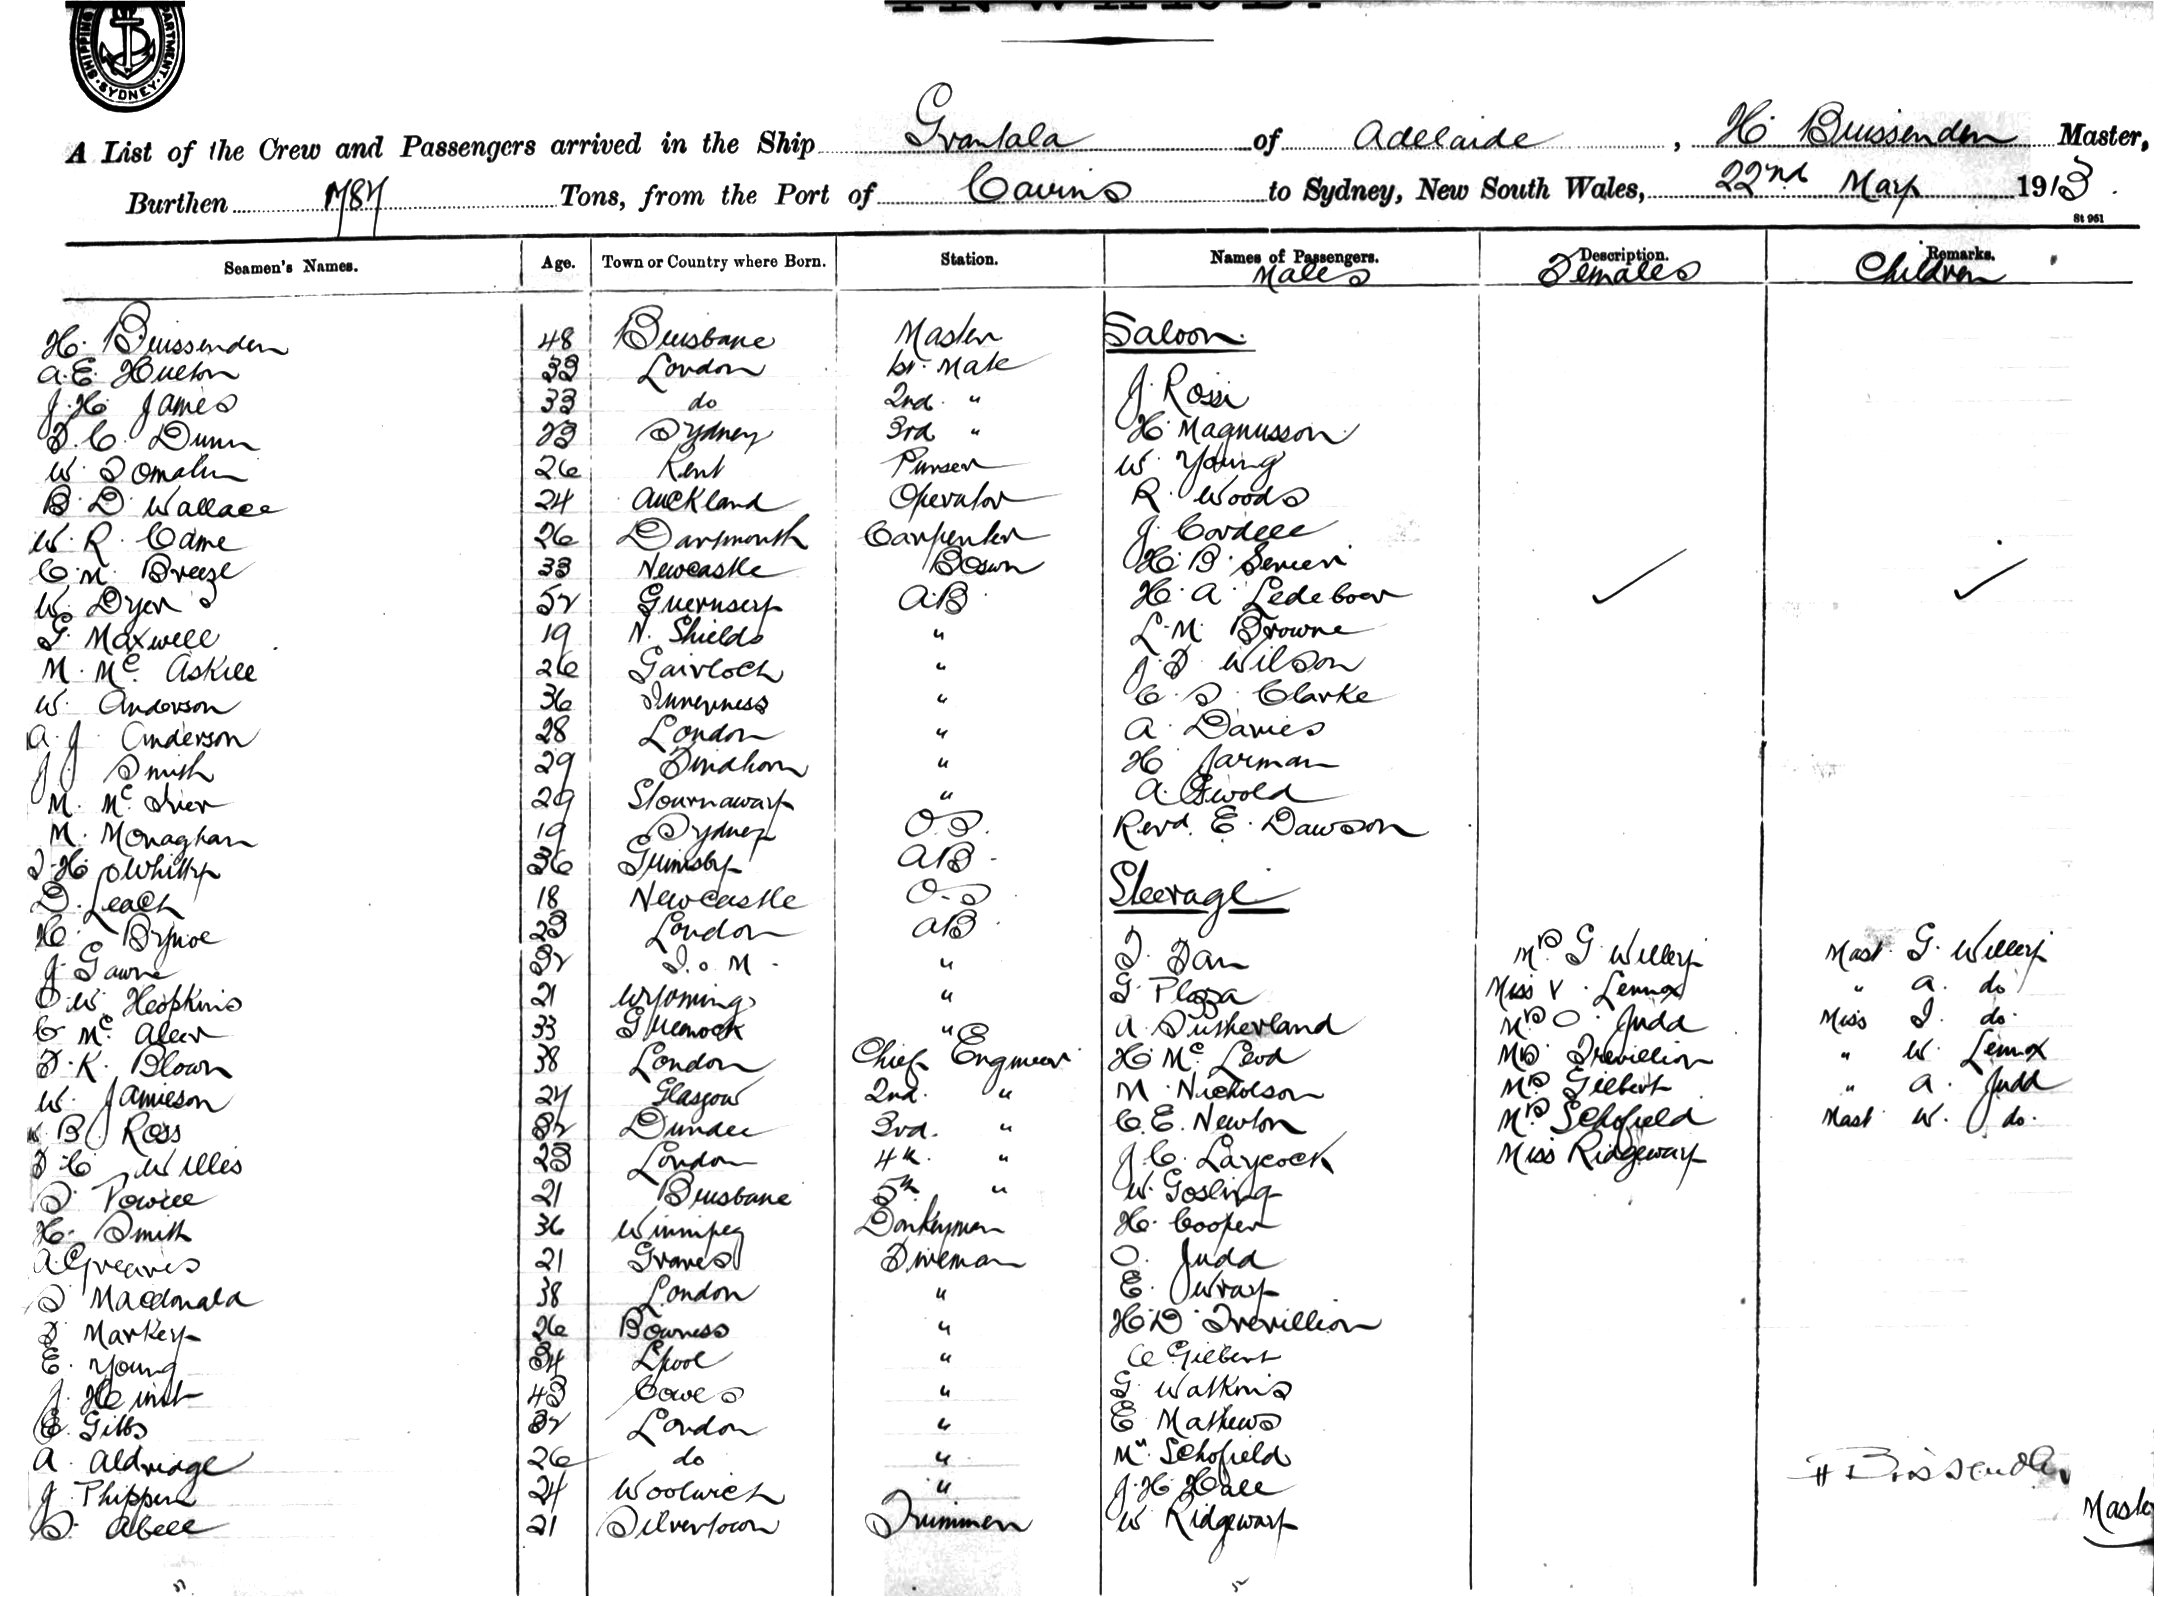 SHIPPING DEPARTMENT SYDNEY
INWARD.
A List of the Crew and Passengers arrived in the Ship Grantala of Adelaide, H. Brissenden Master,
Burthen Tons, from the Port of Cairns to Sydney, New South Wales, 22nd May 1913.
St 961
Seamen's Names. Age. Town or Country where Born. Station. Names of Passengers. Males Description. Females Remarks. Children
H. Brissenden 48 Brisbane Master Saloon.
A. E. Hulton 33 London 1st Mate
J. H. James 33 do 2nd " J. Rossi
F. C. Dunn 23 Sydney 3rd " H. Magnusson
W. Tomalin 26 Kent Purser W. Young
B. D. Wallace 24 Auckland Operator R. Woods
W. R. Came 26 Dartmouth Carpenter J. Cordell
C. M. Breeze 33 Newcastle Bosun H. B.
W. Dyer 52 Guernsey AB. H. A. Ledeboer
G. Maxwell 19 N. Shields " L. M. Browne
M. Mc Askill 26 Gairloch " J. F. Wilson
W. Anderson 36 Inverness " C. S. Clarke
A. J. Anderson 28 London " A. Davies
J. Smith 29 Findhorn " H Jarman
M. Mc Iver 29 Stournaway " A.
M. Monaghan 19 Sydney O.S. Revd. E. Dawson
T. H. Whitty 36 Grimsby AB.
D. Leach 18 Newcastle O-S Steerage
H. Bynoe 23 London AB
J. Gawne 32 I.o.M. " F. Dan Mrs G Willey Mast. G. Willey
O. W. Hopkins 21 Wyoming " G. Plozza Miss V. Lennox " A. do
C Mc Aleer 33 Greenock " A Sutherland Mrs O. Judd Miss I. do.
F. K. Blown 38 London Chief Engineer H Mc Leod Mrs Trevillion " W. Lennox
W. Jamieson 27 Glasgow 2nd. " M. Nicholson Mrs Gilbert " A. Judd
W. B. Ross 32 Dundee 3rd. " C. E. Newton Mrs Schofield Mast W. do.
F C Willis 23 London 4th. " J. C. Laycock Miss Ridgeway
S. Powell 21 Brisbane 5th " W. Gosling
H. Smith 36 Winnipeg Donkeyman H. Cooper
A. Greaves 21 Graves Fireman O. Judd
S Macdonald 38 London " E. Wray
F Markey 26 Bowness " H D Trevillion
E. Young 34 Lpool " C Gilbert
J. Hurst 43 Cowes " G Watkins
E. Gibbs 32 London " E Mathews
A. Aldridge 26 do " Mr. Schofield
J Phippen 24 Woolwich " J. H. Hall H Brissenden
S. Abell 21 Silvertown Trimmer W Ridgeway Master